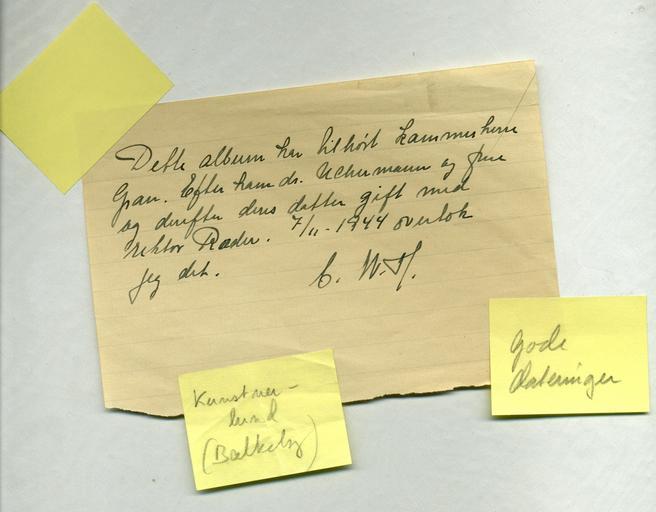 Dette album har tilhört kammerherre
Gran. Efter ham dr. Uchermann og frue
og derefter deres datter gift med
rektor Ræder. 7/11-1944 overtok
jeg det.
C. W. S.
Kunstner-
lund
(Bækkeby)
gode
dateringer